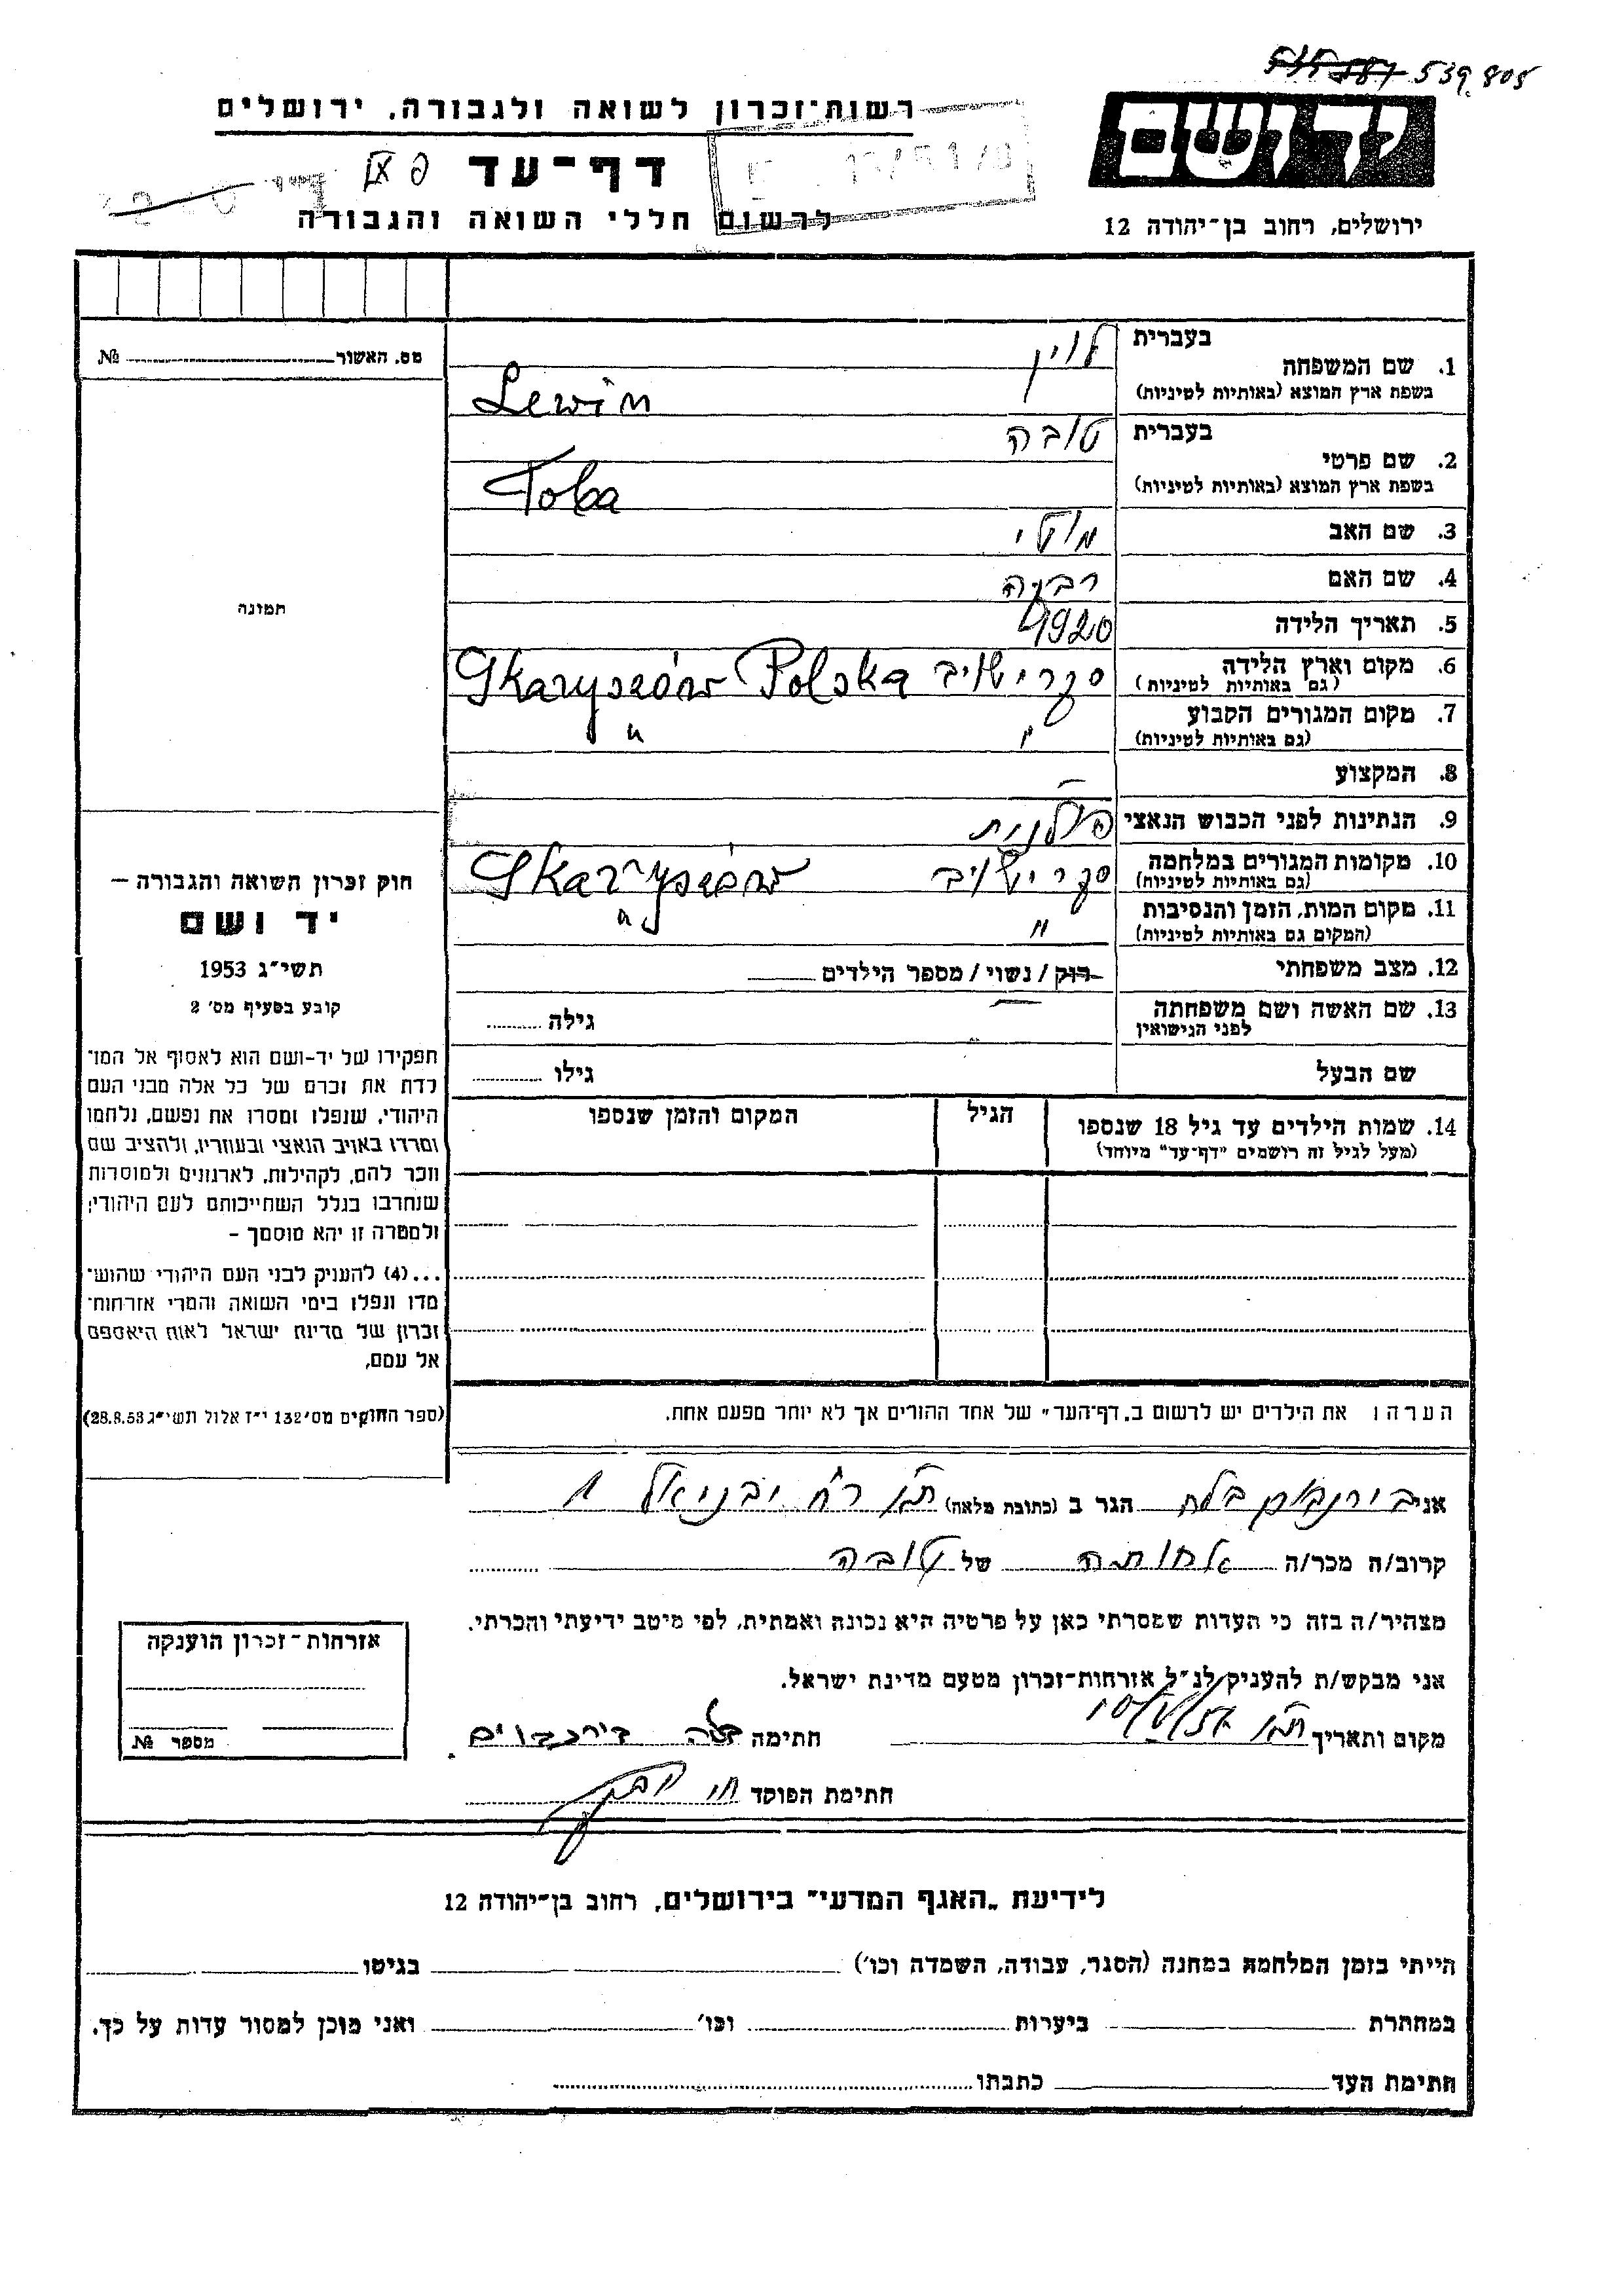 539.805
רשות־זכרון לשואה ולגבורה, ירושלים
יד ושם
דף־עד
לרשום חללי השואה והגבורה
ירושלים, רחוב בן־יהודה 12
מס. האשור № 
1. שם המשפחה
בעברית לוין
בשפת ארץ המוצא (באותיות לטיניות) Lewin
2. שם פרטי
בעברית טובה
בשפת ארץ המוצא (באותיות לטיניות) Toba
3. שם האב מוטי
4. שם האם רבקה
5. תאריך הלידה 1920
6. מקום וארץ הלידה סקרישוב Skaryszów Polska
(גם באותיות לטיניות)
7. מקום המגורים הקבוע " "
(גם באותיות לטיניות)
8. המקצוע –
9. הנתינות לפני הכבוש הנאצי פולנית
10. מקומות המגורים במלחמה סקרישוב Skaryszów
(גם באותיות לטיניות)
11. מקום המות, הזמן והנסיבות " "
(המקום גם באותיות לטיניות)
12. מצב משפחתי רוק / נשוי / מספר הילדים
13. שם האשה ושם משפחתה –
לפני הנישואין
גילה
שם הבעל גילו
14. שמות הילדים עד גיל 18 שנספו הגיל המקום והזמן שנספו
(מעל לגיל זה רושמים "דף־עד" מיוחד)
הערה: את הילדים יש לרשום ב„דף־העד" של אחד ההורים אך לא יותר מפעם אחת.
תמונה
חוק זכרון השואה והגבורה –
יד ושם
תשי"ג 1953
קובע בסעיף מס' 2
תפקידו של יד-ושם הוא לאסוף אל המו־
לדת את זכרם של כל אלה מבני העם
היהודי, שנפלו ומסרו את נפשם, נלחמו
ומרדו באויב הנאצי ובעוזריו, ולהציב שם
וזכר להם, לקהילות, לארגונים ולמוסדות
שנחרבו בגלל השתייכותם לעם היהודי;
ולמטרה זו יהא מוסמך –
...(4) להעניק לבני העם היהודי שהוש־
מדו ונפלו בימי השואה והמרי אזרחות־
זכרון של מדינת ישראל לאות היאספם
אל עמם,
(ספר החוקים מס' 132 י"ז אלול תשי"ג 28.8.53)
אני הגר ב (כתובת מלאה) ת"א רח' יבניאל 1
קרוב/ה מכר/ה אחותה של טובה
מצהיר/ה בזה כי העדות שמסרתי כאן על פרטיה היא נכונה ואמתית, לפי מיטב ידיעתי והכרתי.
אני מבקש/ת להעניק לנ"ל אזרחות־זכרון מטעם מדינת ישראל.
מקום ותאריך ת"א חתימה
חתימת הפוקד
אזרחות־זכרון הוענקה
מספר №
לידיעת „האגף המדעי" בירושלים, רחוב בן־יהודה 12
הייתי בזמן המלחמה במחנה (הסגר, עבודה, השמדה וכו') בגיטו
במחתרת ביערות וכו' ואני מוכן למסור עדות על כך.
חתימת העד כתבתו